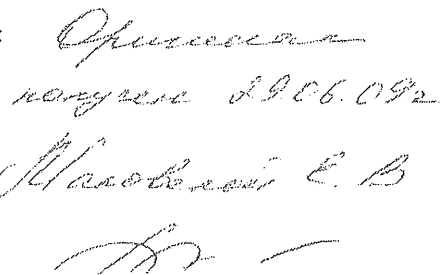 Оригинал
получен 29.06.09г
Маковской Е. В